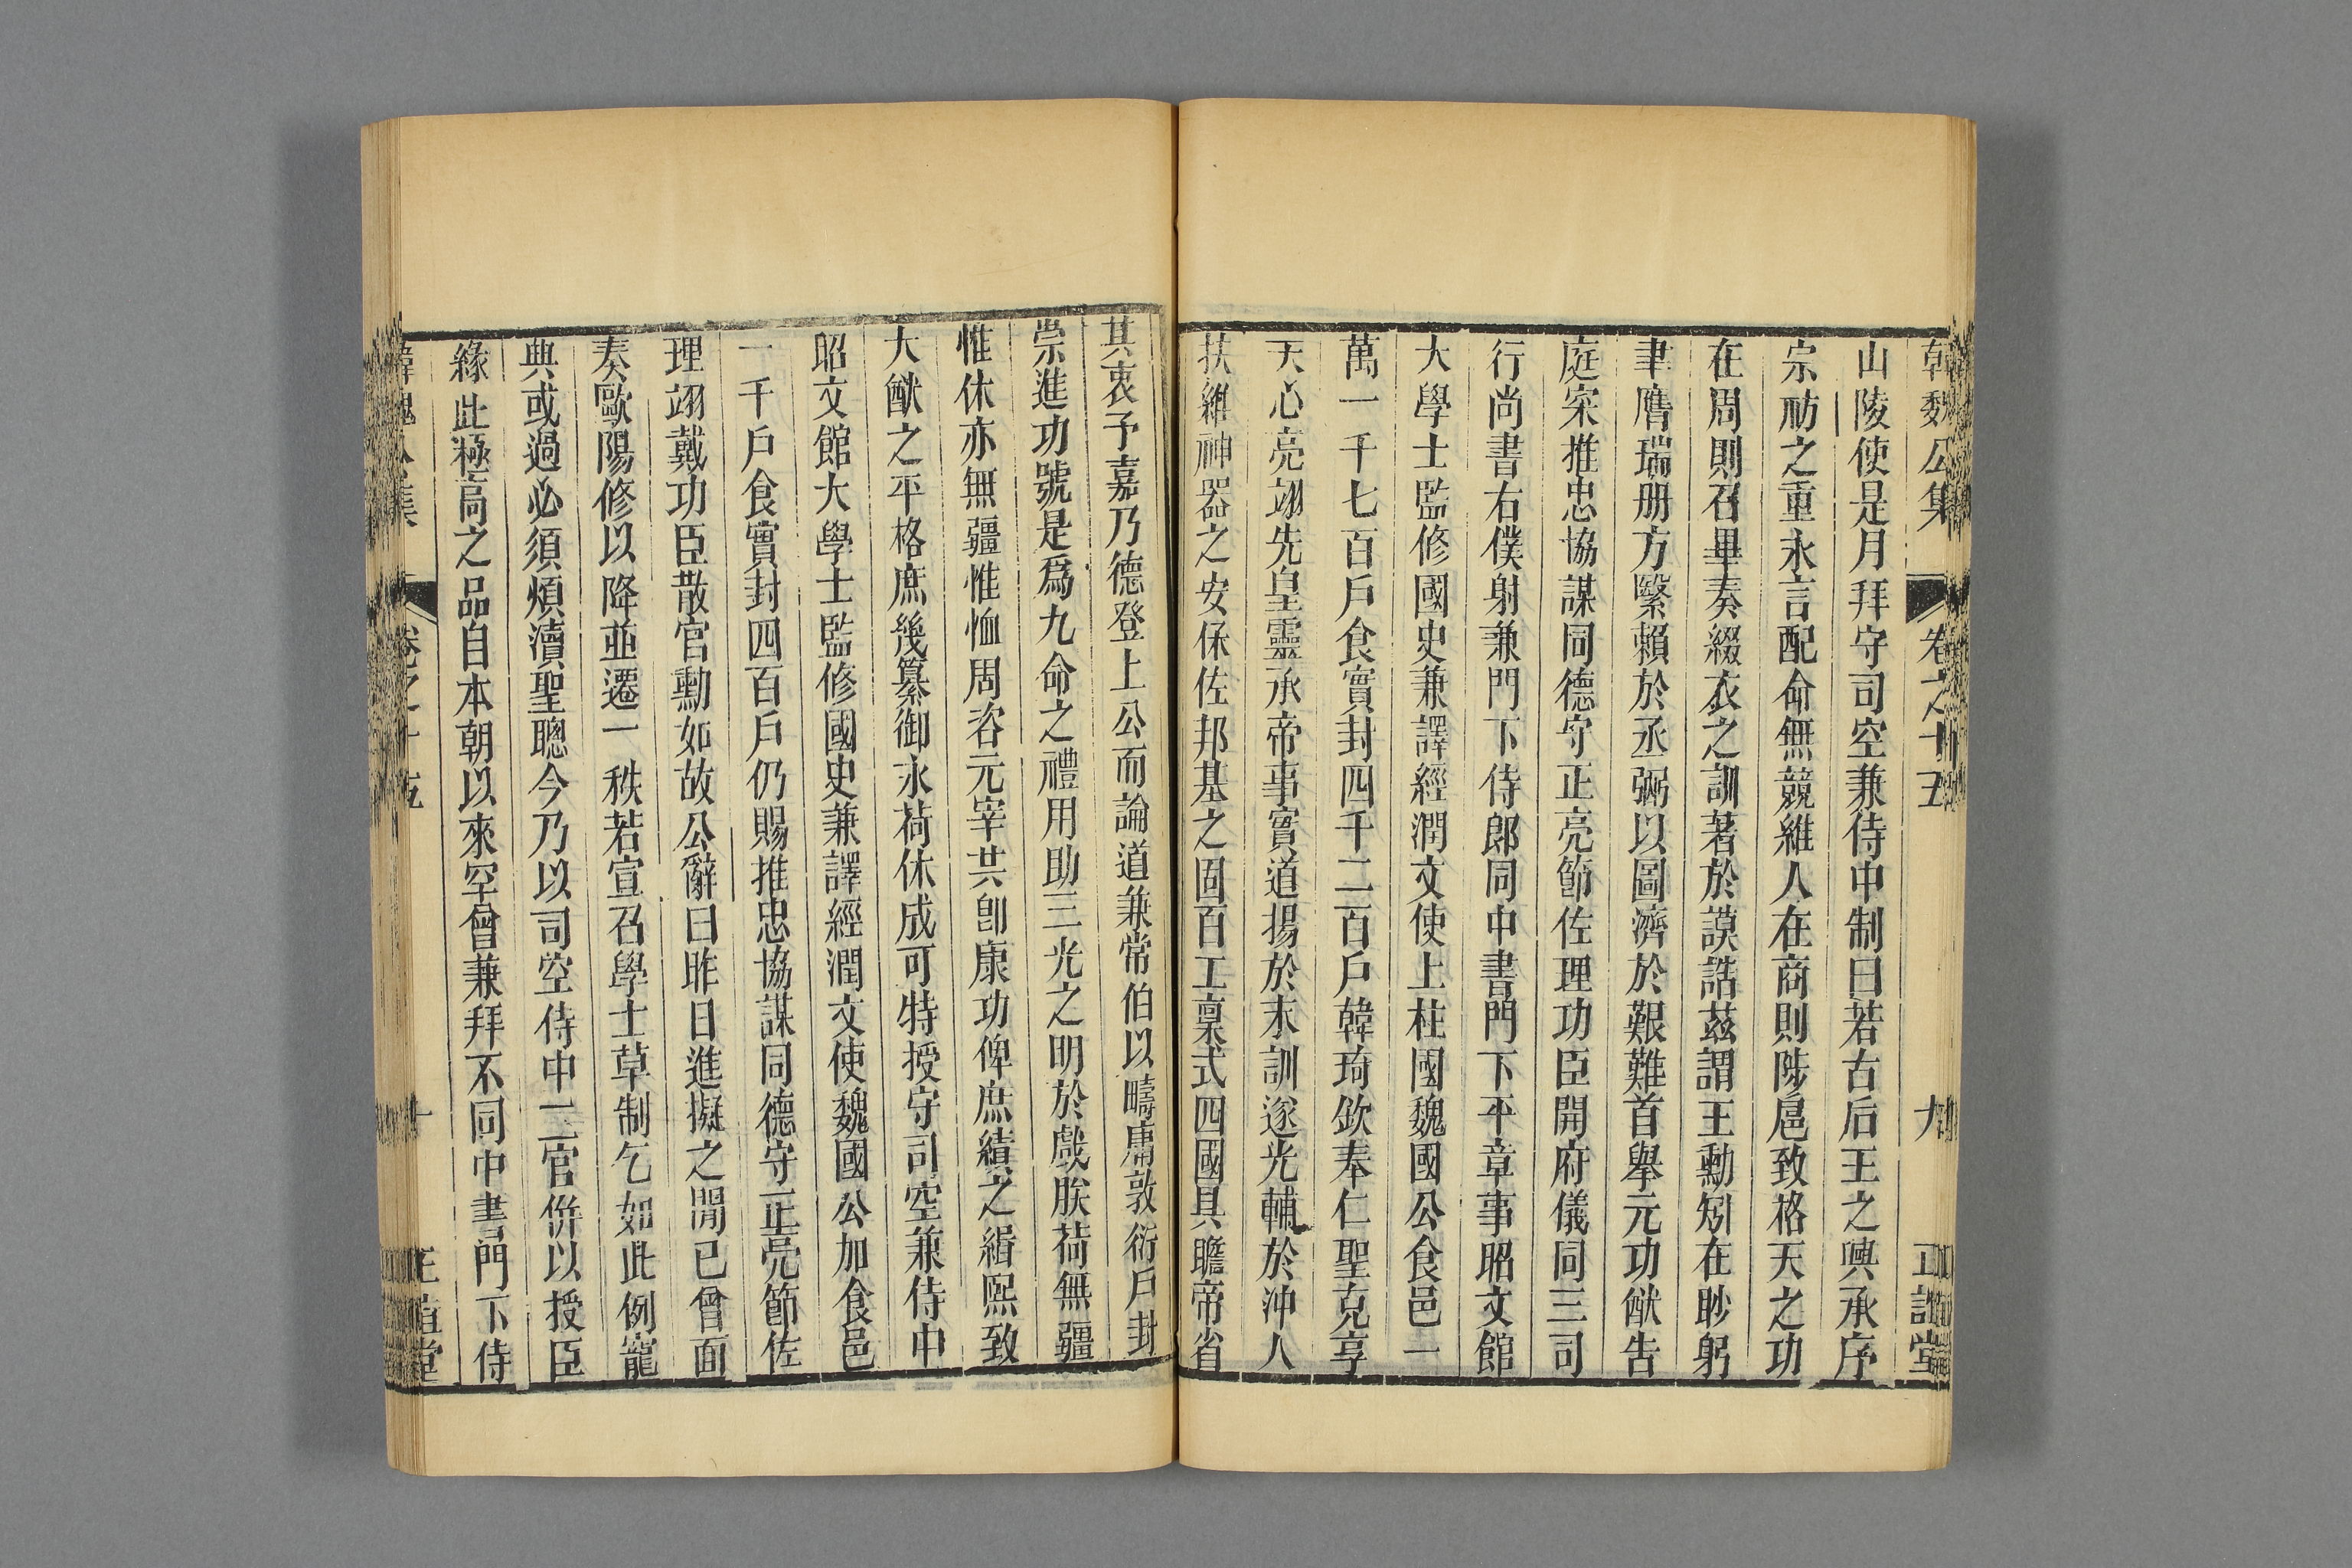 韓魏公集 卷之十五 九 正誼堂
山陵使是月拜守司空兼侍中制曰若古后王之興承序
宗祊之重永言配命無競維人在商則陟扈致格天之功
在周則召畢奏綴衣之訓著於謨誥茲謂王勳矧在眇躬
聿膺瑞册方繄賴於丞弼以圖濟於艱難首舉元功猷告
庭寀推忠協謀同德守正亮節佐理功臣開府儀同三司
行尚書右僕射兼門下侍郎同中書門下平章事昭文館
大學士監修國史兼譯經潤文使上柱國魏國公食邑一
萬一千七百戶食實封四千二百戶韓琦欽奉仁聖克享
天心亮翊先皇靈承帝事實道揚於末訓遂光輔於沖人
扶維神器之安保佐邦基之固百工稟式四國具瞻帝省
其衷予嘉乃德登上公而論道兼常伯以疇庸敦衍戶封
崇進功號是爲九命之禮用助三光之明於戲朕荷無疆
惟休亦無疆惟恤周咨元宰共卽康功俾庶績之緝熙致
大猷之平格庶幾纂御永荷休成可特授守司空兼侍中
昭文館大學士監修國史兼譯經潤文使魏國公加食邑
一千戶食實封四百戶仍賜推忠協謀同德守正亮節佐
理翊戴功臣散官勳如故公辭曰昨日進擬之閒已曾面
奏歐陽修以降並遷一秩若宣召學士草制乞如此例寵
典或過必須煩瀆聖聰今乃以司空侍中二官併以授臣
緣此極高之品自本朝以來罕曾兼拜不同中書門下侍
韓魏公集 卷之十五 十 正誼堂